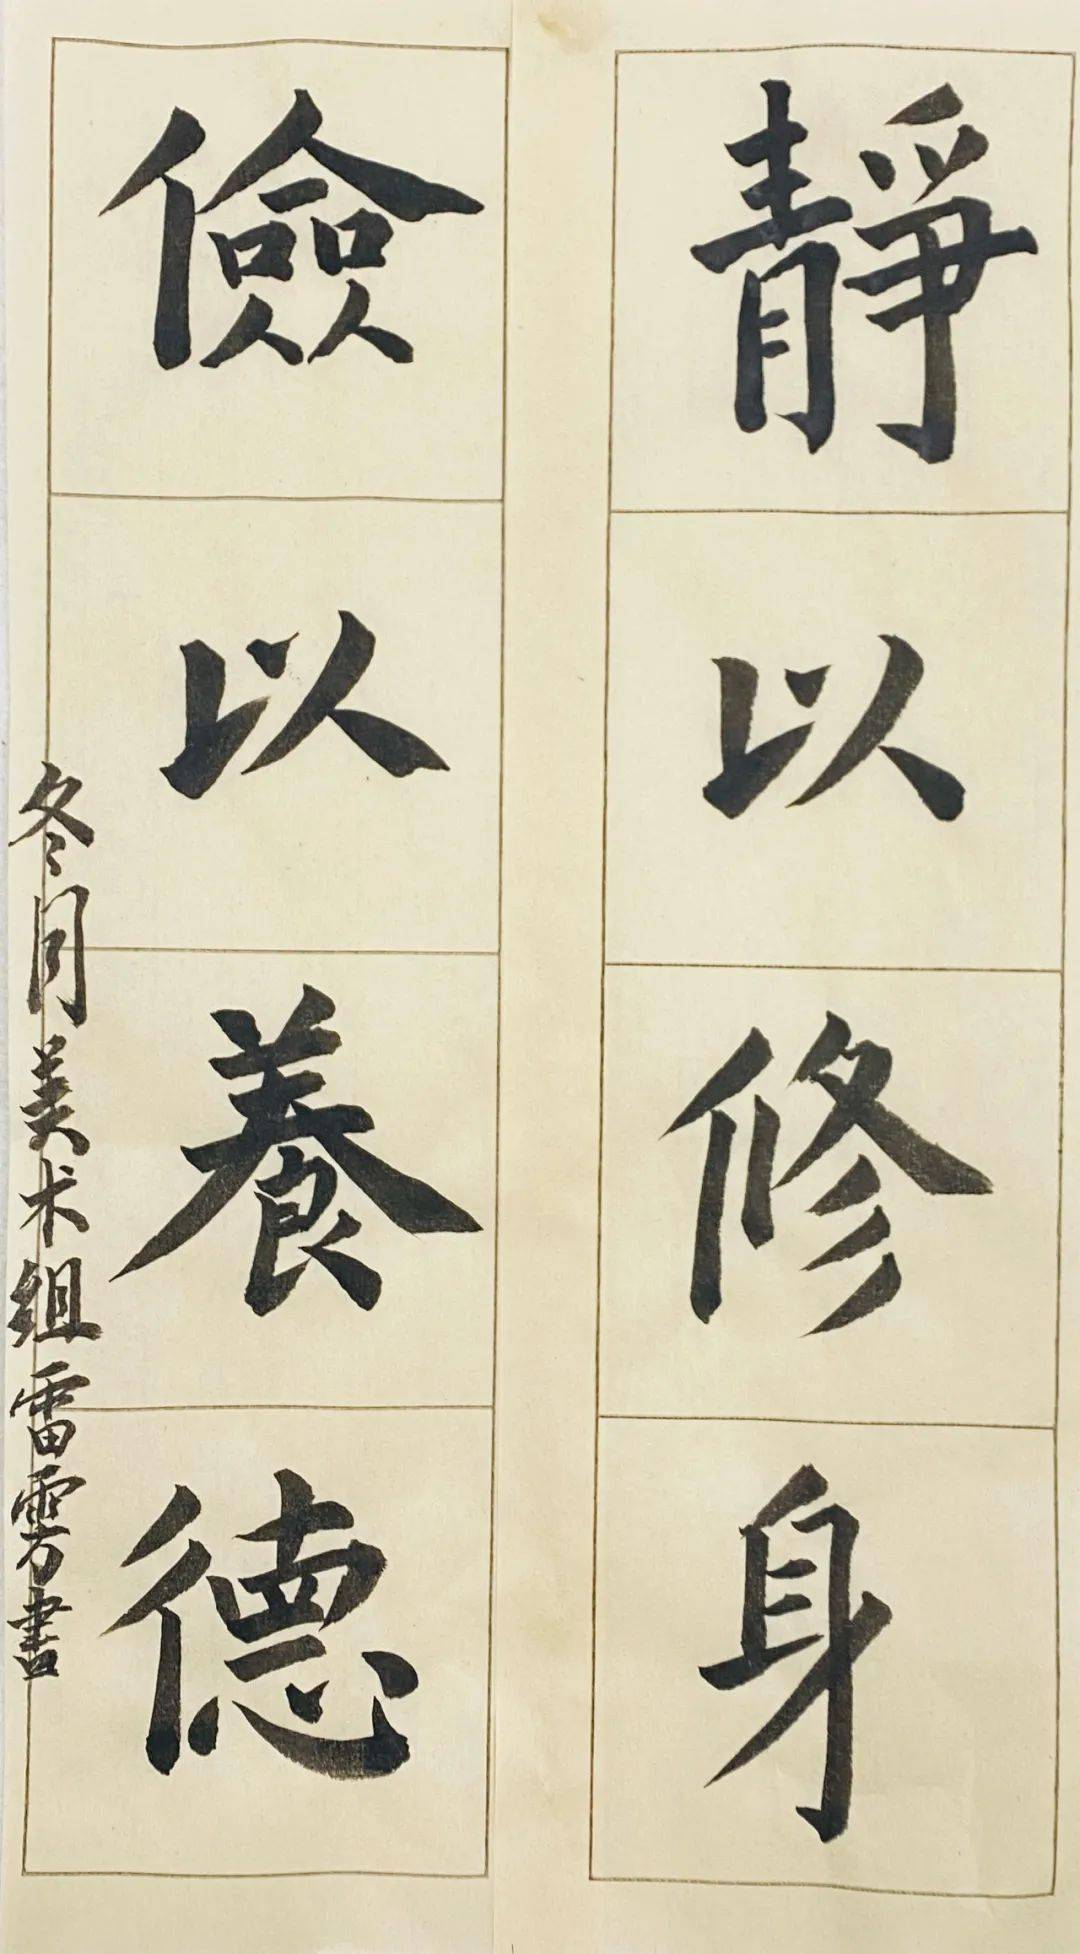 靜以修身
儉以養德
冬月美术组雷雱書